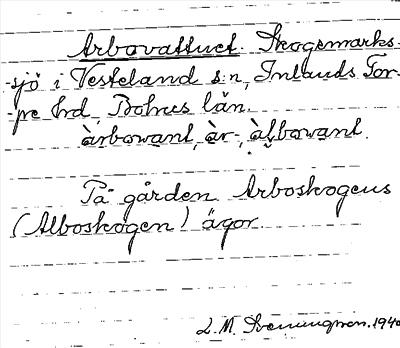 Arbovattnet. Skogsmarks-
-sjö i Vesteland s:n, Inlands Tor-
-pe hd, Bohus län.
àrbowant, àr-, àlbowant.
På gården Arboskogens
(Alboskogen) ägor.
L. M. Svenungsson. 1940